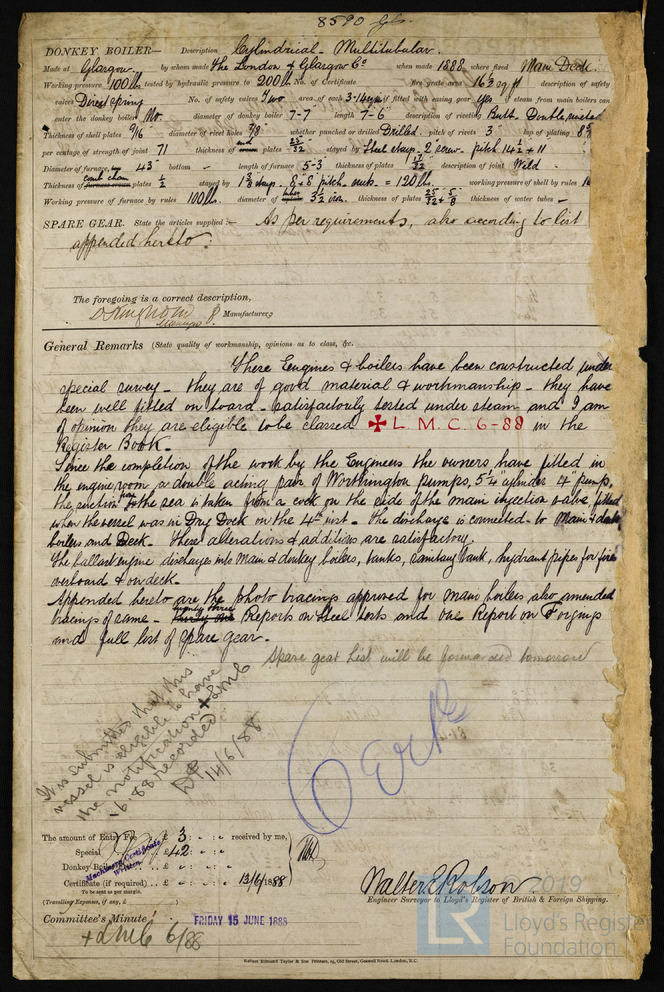 8590 Gls.
DONKEY BOILER— Description Cylindrical Multitubular.
Made at Glasgow. by whom made The London & Glasgow Co when made 1888 where fixed Main Deck.
Working pressure 100 lb tested by hydraulic pressure to 200 lb No. of Certificate fire grate area 16½ sq ft description of safety
valves Direct spring No. of safety valves Two area of each 3·14 if fitted with easing gear yes if steam from main boilers can
enter the donkey boiler No. diameter of donkey boiler 7-7 length 7-6 description of riveting Butt. Double
Thickness of shell plates 9/16 diameter of rivet holes 7/8 whether punched or drilled Drilled. pitch of rivets 3 lap of plating 8
per centage of strength of joint 71 thickness of end plates 23/32 stayed by Steel stays. 2 screw. pitch 14½ + 11
Diameter of furnace, 43" bottom - length of furnace 5-3 thickness of plates 17/32 description of joint Weld
Thickness of comb cham plates ½ stayed by 1⅜ stays - 8+8 pitch. nuts = 120 lb. working pressure of shell by rules 1
Working pressure of furnace by rules 100 lb. diameter of tubes 3½ iron. thickness of plates 25/32 & 5/8 thickness of water tubes -
SPARE GEAR. State the articles supplied:— As per requirements, also according to list
appended hereto:
The foregoing is a correct description,
Manufacturer
General Remarks (State quality of workmanship, opinions as to class, &c.
These Engines & boilers have been constructed under
special survey - they are of good material & workmanship - they have
been well fitted on board - satisfactorily tested under steam and I am
of opinion they are eligible to be classed ✠ L. M. C. 6-88 in the
Register Book.
Since the completion of the work by the Engineers the owners have fitted in
the engine room a double acting pair of Worthington pumps, 5¼" cylinder 4" pump,
the suction from the sea is taken from a cock on the side of the main injection valve fitted
when the vessel was in Dry Dock on the 4th inst. - The discharge is connected to Main & donk
boilers and Deck. These alterations & additions are satisfactory.
The ballast engine discharges into Main & donkey boilers, tanks, sanitary tank, hydrant pipes for fire
overboard & on deck.
Appended hereto are the photo tracings approved for main boilers also amended
tracings of same - twenty three Reports on Steel tests and one Report on Forgings
and full list of Spare gear.
Spare gear List will be forwarded tomorrow
It is submitted that this
vessel is eligible to have
the notification + LMC
6.88 recorded
14/6/88
The amount of Entry Fee .. £ 3 : - : - received by me,
Special .. £ 42 : - : -
Donkey Boiler
Machinery Certificate
Written
Certificate (if required) .. £ : - : - 13/6/1888
To be sent as per margin.
(Travelling Expenses, if any, £ )
Walter E Robson
Engineer Surveyor to Lloyd's Register of British & Foreign Shipping.
Committee's Minute
FRIDAY 15 JUNE 1888
+ LMC 6/88
© 2019
LR
Lloyd's Register
Foundation
Robert Edmund Taylor & Son Printers, 19, Old Street, Goswell Road, London, E.C.